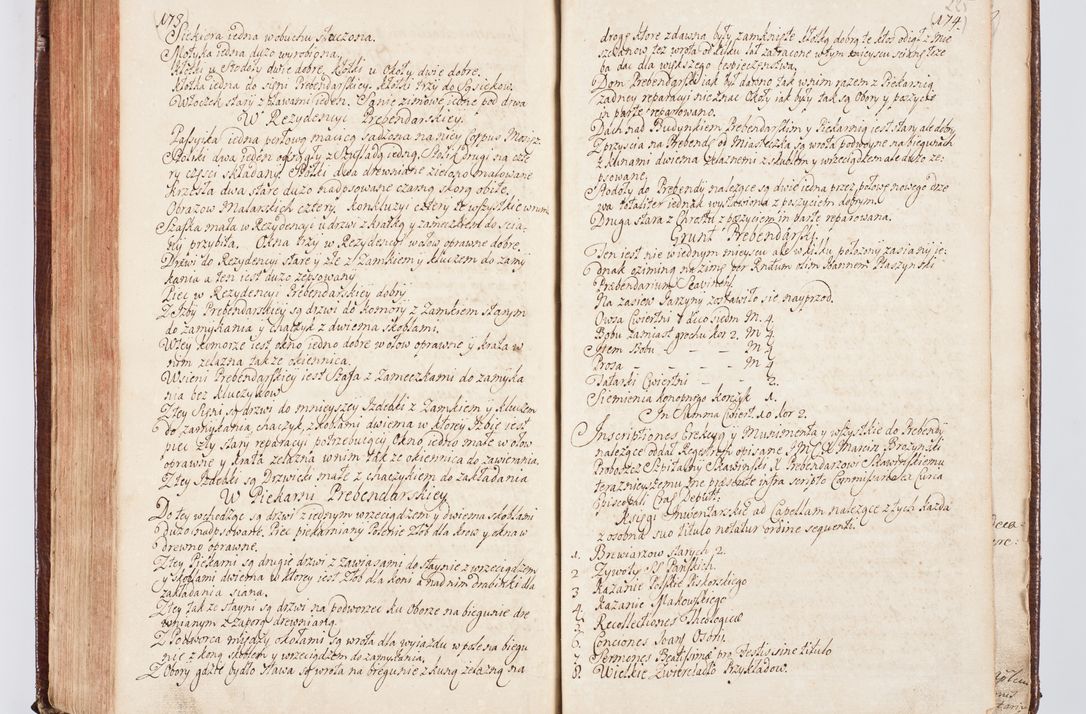 (173)
Siekiera iedna w obuchu stłuczona.
Motyka iedna dużo wyrobiona,
Kłotki u Stodoły dwie dobre, Kłotki u Okoły dwie dobre.
Kłotka iedna do Sieni Prebendarskiey. Kłotki trzy do Sąsiekow
Włoczek stary z bławami ieden. Sanie zimowe iedne pod drwa
W Rezydencyi Prebendarskiey.
Passyika iedna perłową macicą sadzona na niey Corpus Mosięż:
Stoliki dwa ieden okrągły z Szufladą iedną. Stolik drugi na czte
ry części składany. Stołki dwa drewniane zielono malowane
Krzesła dwa stare dużo nadpsowane czarną skorą obite.
Obrazow Malarskich cztery. Konkluzyi cztery te wszystkie w ramach
Szafka mała w Rezydencyi u drzwi z kratką y zameczkiem do scia
ny przybita. Okna trzy w Rezydencyi w ołow oprawne dobre.
Drzwi do Rezydencyi stare y złe z Zamkiem y kluczem do zamy
kania a ten iest dużo zepsowany
Piec w Rezydencyi Prebendarskiey dobry
Z Izby Prebendarskiey są drzwi do komory z Zamkiem starym
do zamykania y chaczyk z dwiema skoblami.
W tey komorze iest okno iedno dobre w ołow oprawne y krata w
nim zelazna także okiennica
W sieni Prebendarskiey iest Szafa z Zameczkami do zamyka
nia bez kluczykow
Z tey Sieni są drzwi do mnieyszey Izdebki z Zamkiem y kluczem
do zamykania, chaczyk, z skoblami dwiema w ktorey Izbie iest
piec zły stary reparacyi potrzebuiący. Okno iedno małe w ołow
oprawne y krata zelazna w nim także okiennica do zawierania.
Z tey Izdebki są Drzwiczki małe z chaczykiem do zakładania
W Piekarni Prebendarskiey
Do tey wchodząc są drzwi z iednym wrzeciądzem y dwiema skoblami
Dużo nadpsowane. Piec piekarniany Polenie Złob dla krow y okna w
drewno oprawne.
Z tey Piekarni są drugie drzwi z zawiasami do stayni z wrzeciądzem
y skoblami dwiema w ktorey iest Złob dla koni a nad nim Drabinki dla
zakładania siana.
Z tey także stayni są drzwi na podworzec ku Oborze na biegunie dre
wnianym z zaporą drewnianą.
Z Podworca między okołami są wrota dla wyiazdu w pole na biegu
nie z kuną skoblem y wrzeciądzem do zamykania,
Z Obory gdzie bydło stawa są wrota na biegunie z kuną zelazną na
(174)
drogę ktore zdawna były zamknięte kłotką dobrą te ktoś odiął z mie
szczanow tez wrota od kilku lat zatracone w tym mieyscu scianę trze
ba dać dla większego bespieczenstwa.
Dom Prebendarski iak był dawno tak w swim razem z Piekarnią
zadney reparacyi nie znać Okoły iak były tak są Obory y poszycie
in parte reparowano.
Dach nad Budynkiem Prebendarskim y Piekarnią iest stary ale dobry
Z przyscia na Prebendę od Miasteczka są wrota podwoyne na biegunach
z kunami dwiema zelaznemi z skoblem y wrzeciądzem ale dużo ze:
psowane,
Stodoły do Prebendy należące są dwie iedna przez połowę nowego drze
wa totaliter iednak wystawiona z poszyciem dobrym
Druga stara z Chrostu z poszyciem in parte reparowana.
Grunt Prebendarski
Ten iest nie w iednym mieyscu ale w kilku położony zasiany ie:
dnak oziminą na zimę per Rndum olim Ioannem Staszynski
Præbendarium Skavinen.
Na zasiew Jarzyny zostawiło się nayprzod.
Owsa Cwiertni dwo siedm M. 4
Bobu zamiast grochu kor 2. M 4
Item Bobu - - - M 4
Prosa - - - M 4
Tatarki Cwiertni - - 2.
Siemienia konopnego Korczyk 1.
In Summa Cwiert. 10 kor 2.
Inscriptiones Erekcyą y Munimenta y wszystkie do Prebendy
należące oddał Regestrem opisane J M C X Marcin Brozynski
Proboszcz Szpitalny Skawinski X Prebendarzowi Skawinskiemu
teraznieyszemu me præsente infra scripto Commissario a Curia
Episcopali Crac Deput:
Księgi Inwentarskie ad Capellam nalezące z tych każda
z osobna suo titulo notatur ordine sequenti.
1. Brewiarzow starych 2.
2 Zywoty SS Pańskich.
3 Kazanie Polskie Piskorskiego
4 Kazanie Makowskiego
5. Recollectiones Theologicæ
6. Conciones Boary Osorii.
7. Sermones Beatissimæ pro Festis sine titulo
8. Wielkie Zwierciadło Przykładow.